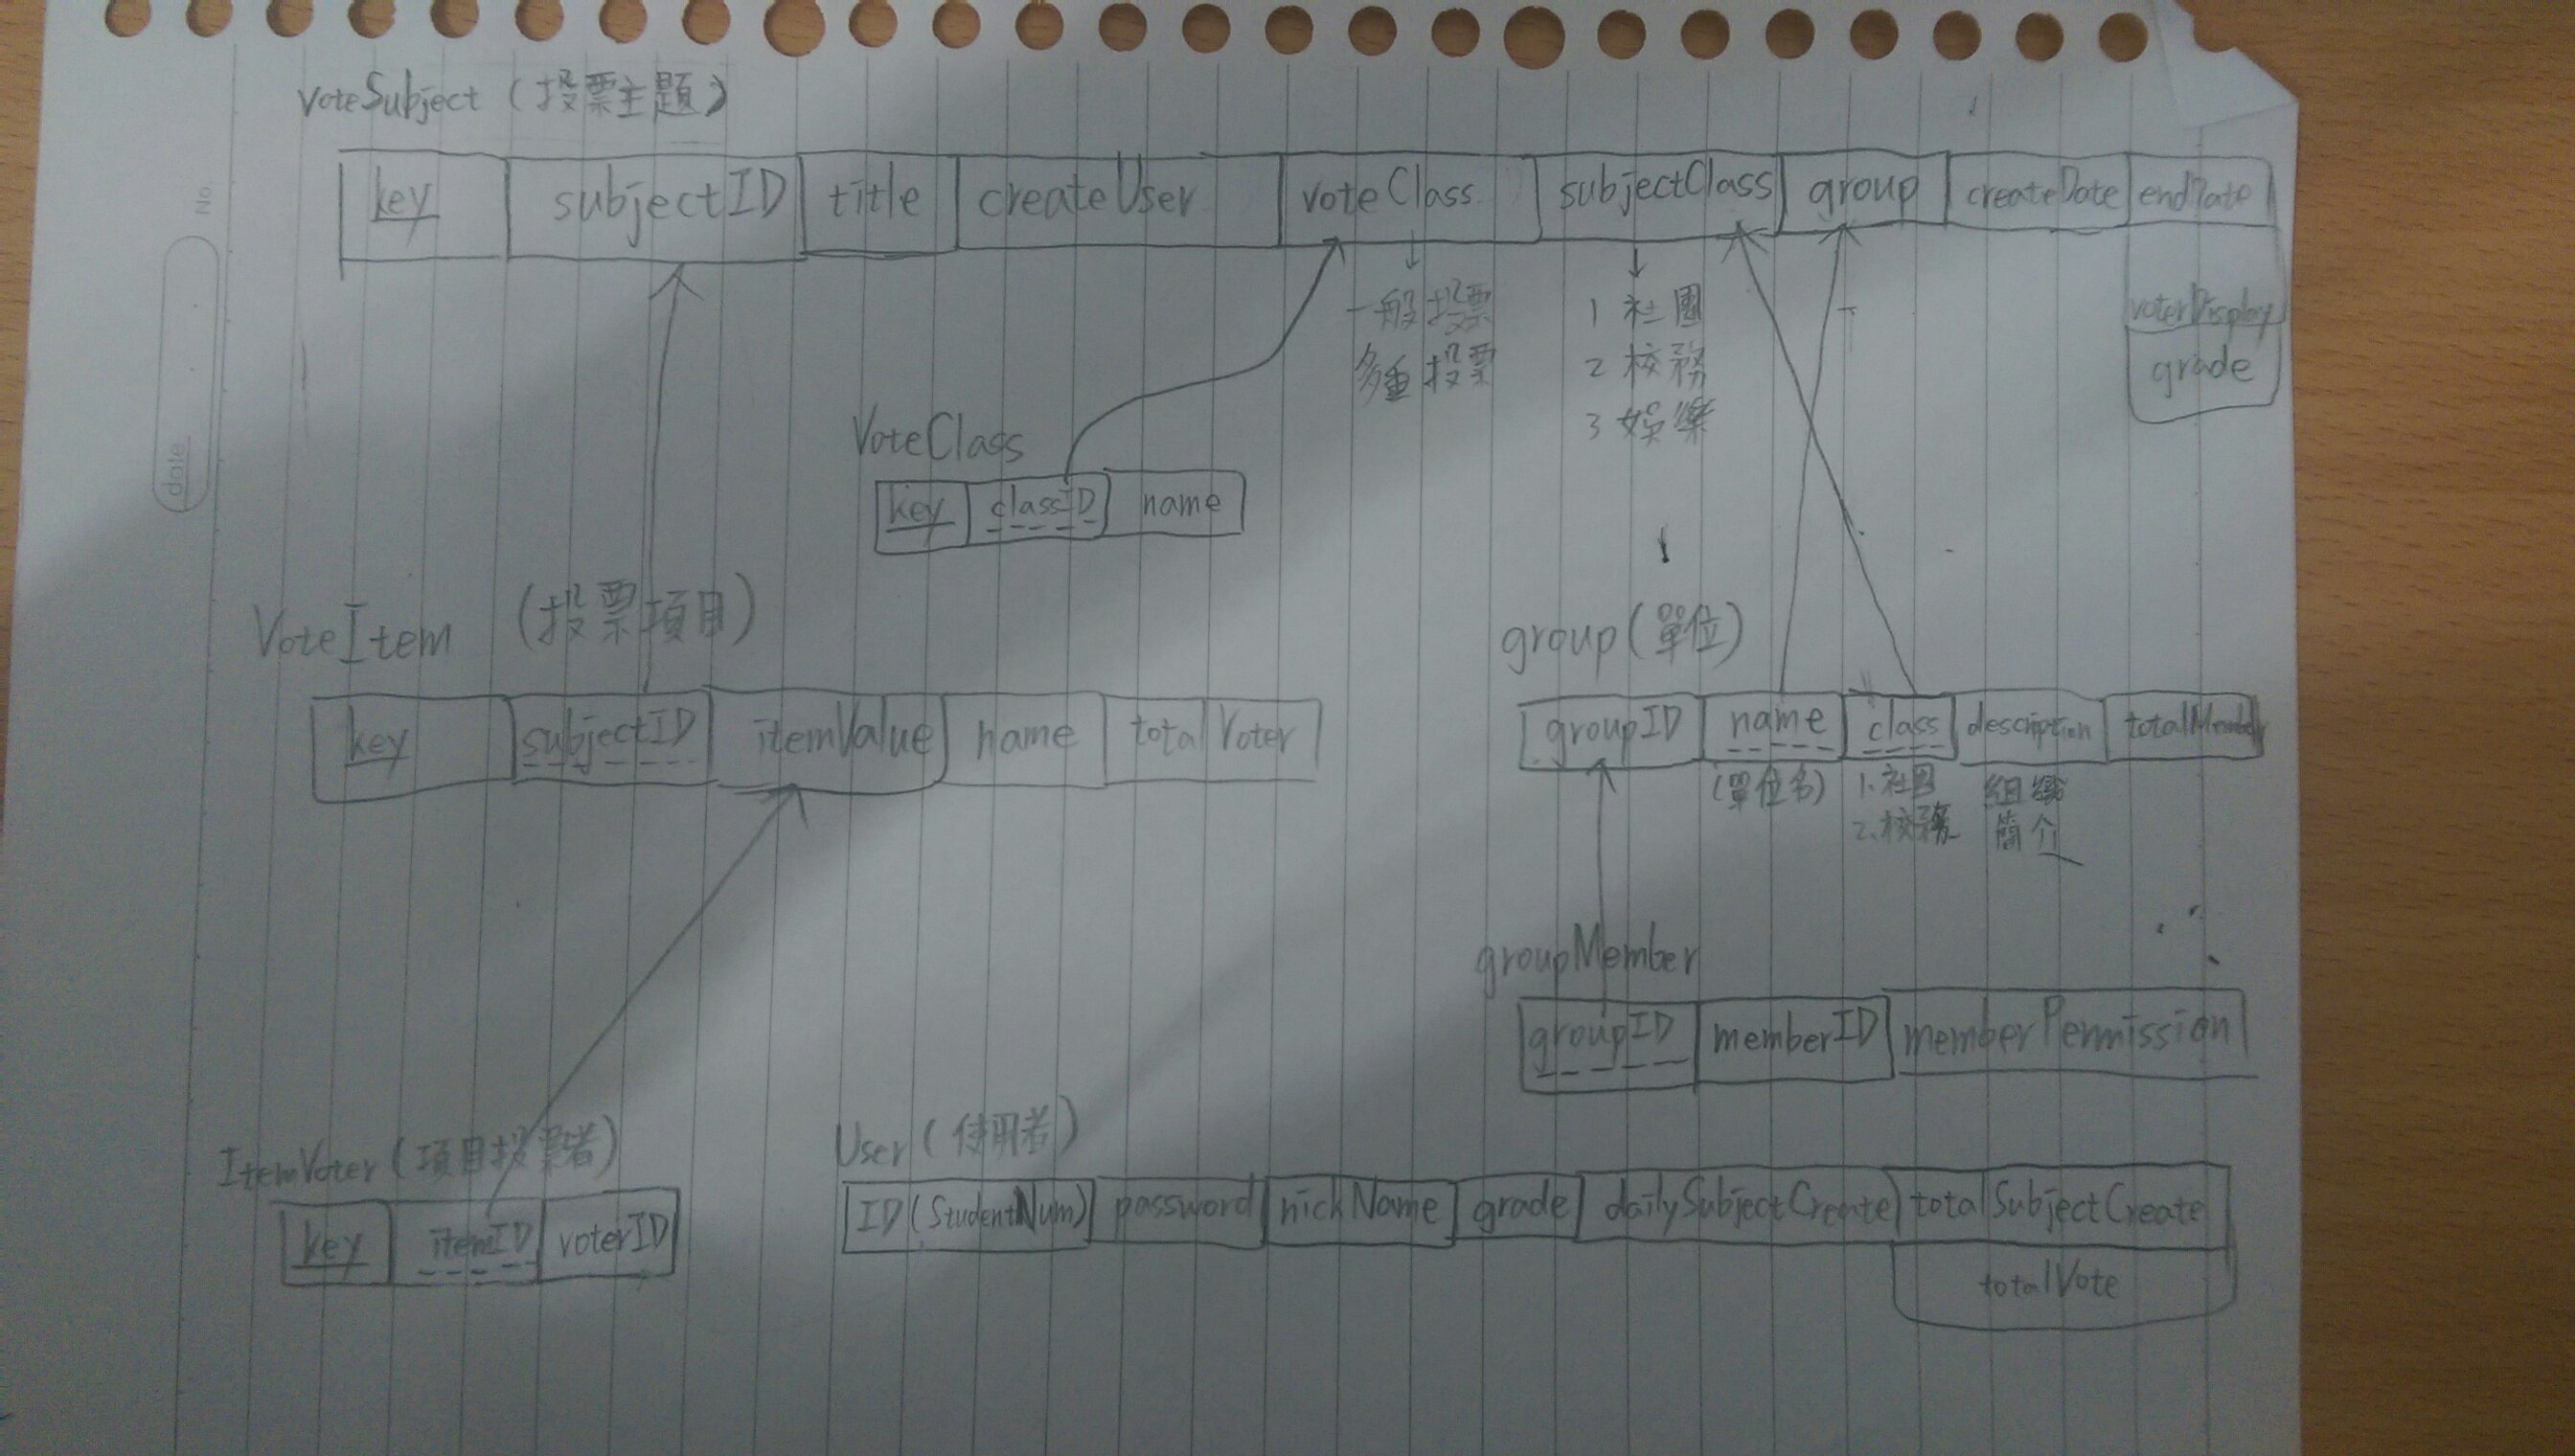 No.
date
VoteSubject (投票主題)
key subjectID title createUser voteClass subjectClass group createDate endDate
一般投票
多重投票
1 社團
2 校務
3 娛樂
voterDisplay
grade
VoteClass
key classID name
VoteItem (投票項目)
key subjectID itemValue name totalVoter
group (單位)
groupID name class description totalMember
(單位名)
1.社團
2.校務
組織
簡介
groupMember
groupID memberID memberPermission
ItemVoter (項目投票者)
key itemID voterID
User (使用者)
ID (StudentNum) password nickName grade dailySubjectCreate totalSubjectCreate
totalVote